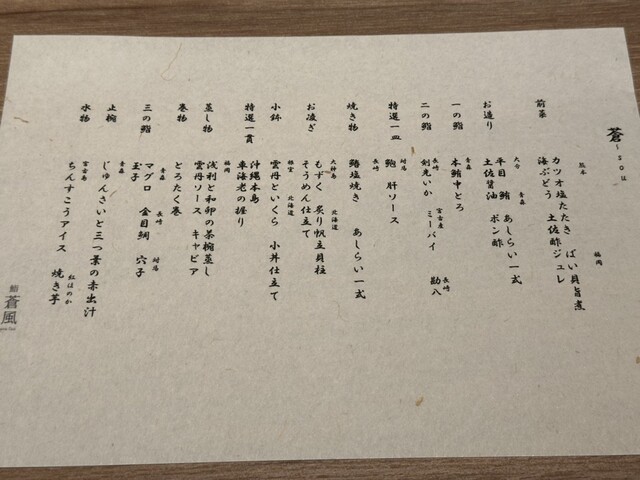 蒼～sou
前菜
熊本 福岡
カツオ塩たたき ばい貝旨煮
海ぶどう 土佐酢ジュレ
お造り
大分 青森
平目 鮪 あしらい一式
土佐醤油 ポン酢
一の鮨
青森
本鮪中とろ
二の鮨
長崎 宮古産 長崎
剣先いか ミーバイ 勘八
特選一皿
対馬
鮑 肝ソース
焼き物
長崎
鰆塩焼き あしらい一式
お凌ぎ
大神島 北海道
もずく 炙り帆立貝柱
そうめん仕立て
小鉢
根室 北海道
雲丹といくら 小丼仕立て
特選一貫
沖縄本島
車海老の握り
蒸し物
福岡
浅利と和卵の茶椀蒸し
雲丹ソース キャビア
巻物
とろたく巻
三の鮨
青森 長崎 対馬
マグロ 金目鯛 穴子
玉子
止椀
青森
じゅんさいと三つ葉の赤出汁
水物
宮古島 紅はるか
ちんすこうアイス 焼き芋
鮨 蒼風